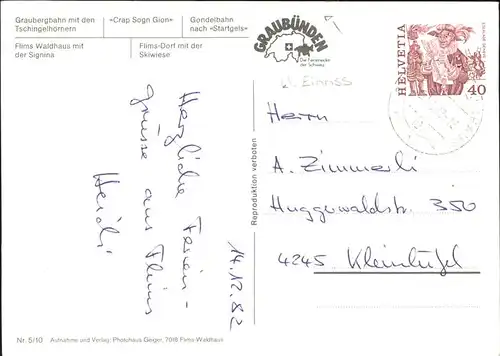 Graubergbahn mit den
Tschingelhörnern
«Crap Sogn Gion»
Gondelbahn
nach «Startgels»
Flims Waldhaus mit
der Signina
Flims-Dorf mit der
Skiwiese
GRAUBÜNDEN
Die Ferienecke
der Schweiz
HELVETIA
40
kl. Einriss
Herzliche Ferien-
grüsse aus Flims
Heidi
14.12.82
Reproduktion verboten
Herrn
A. Zimmerli
Huggerwaldstr. 350
4245 Kleinlützel
Nr. 5/10 Aufnahme und Verlag: Photohaus Geiger, 7018 Flims-Waldhaus